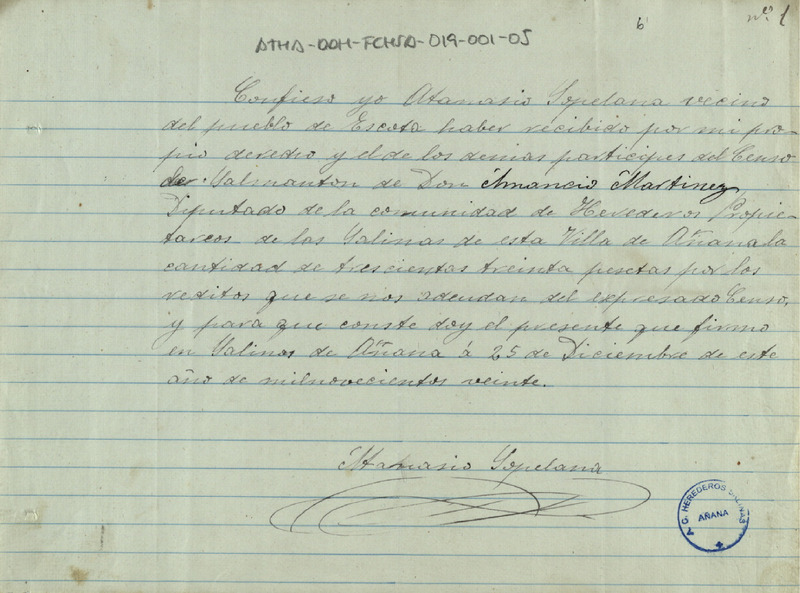 6
nº 1
ATHA-DOH-FCHSA-019-001-05
Confieso yo Atanasio Sopelana vecino
del pueblo de Escota haber recibido por mi pro-
pio deredro y el de los demas participes del Censo
de Salmanton de Don Amancio Martinez,
Diputado de la comunidad de Herederos Propie-
tareos de las Salinas de esta Villa de Añana la
cantidad de trescientas treinta pesetas por los
reditos que se nos adeudan del expresado Censo,
y para que conste doy el presente que firmo
en Salinas de Añana á 25 de Diciembre de este
año de milnovecientos veinte.
Atanasio Sopelana
A. G. HEREDEROS SALINAS
AÑANA